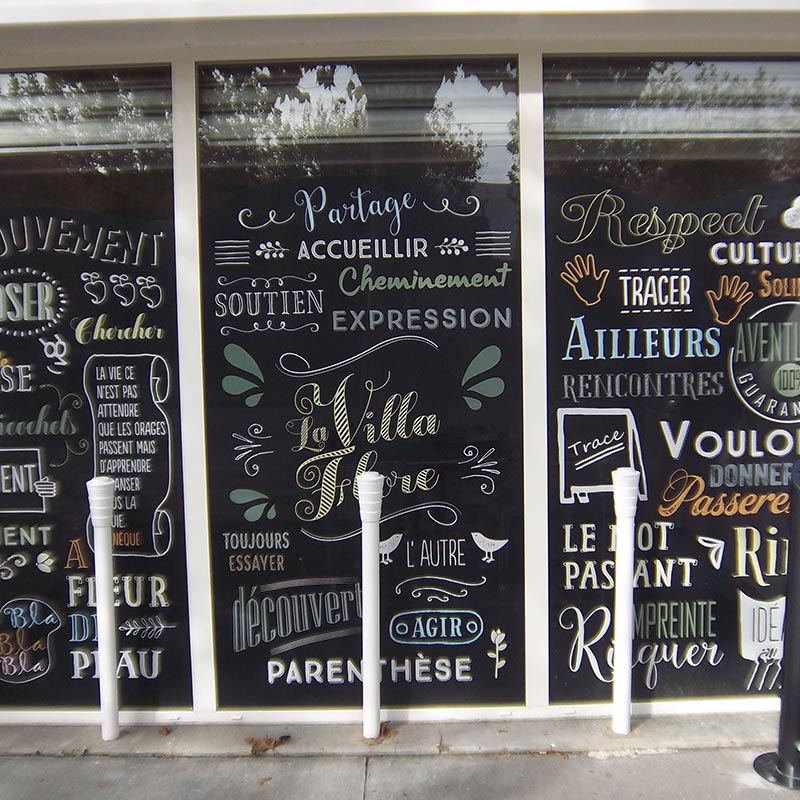 OUVEMENT
OSER
Chercher
SE
Ricochets
LA VIE CE
N'EST PAS
ATTENDRE
QUE LES ORAGES
PASSENT MAIS
D'APPRENDRE
DANSER
SOUS LA
PLUIE.
SÉNÈQUE
ENT
MENT
Bla
Bla
Bla
A
FLEUR
DE
PEAU
Partage
ACCUEILLIR
Cheminement
SOUTIEN
EXPRESSION
La Villa
Flore
TOUJOURS
ESSAYER
L'AUTRE
découvert
AGIR
PARENTHÈSE
Respect
CULTUR
TRACER
SOLI
AILLEURS
AVENTU
100%
GUARAN
RENCONTRES
Trace
VOULO
DONNER
Passere
LE MOT
PASSANT
RI
EMPREINTE
Risquer
IDÉ
au